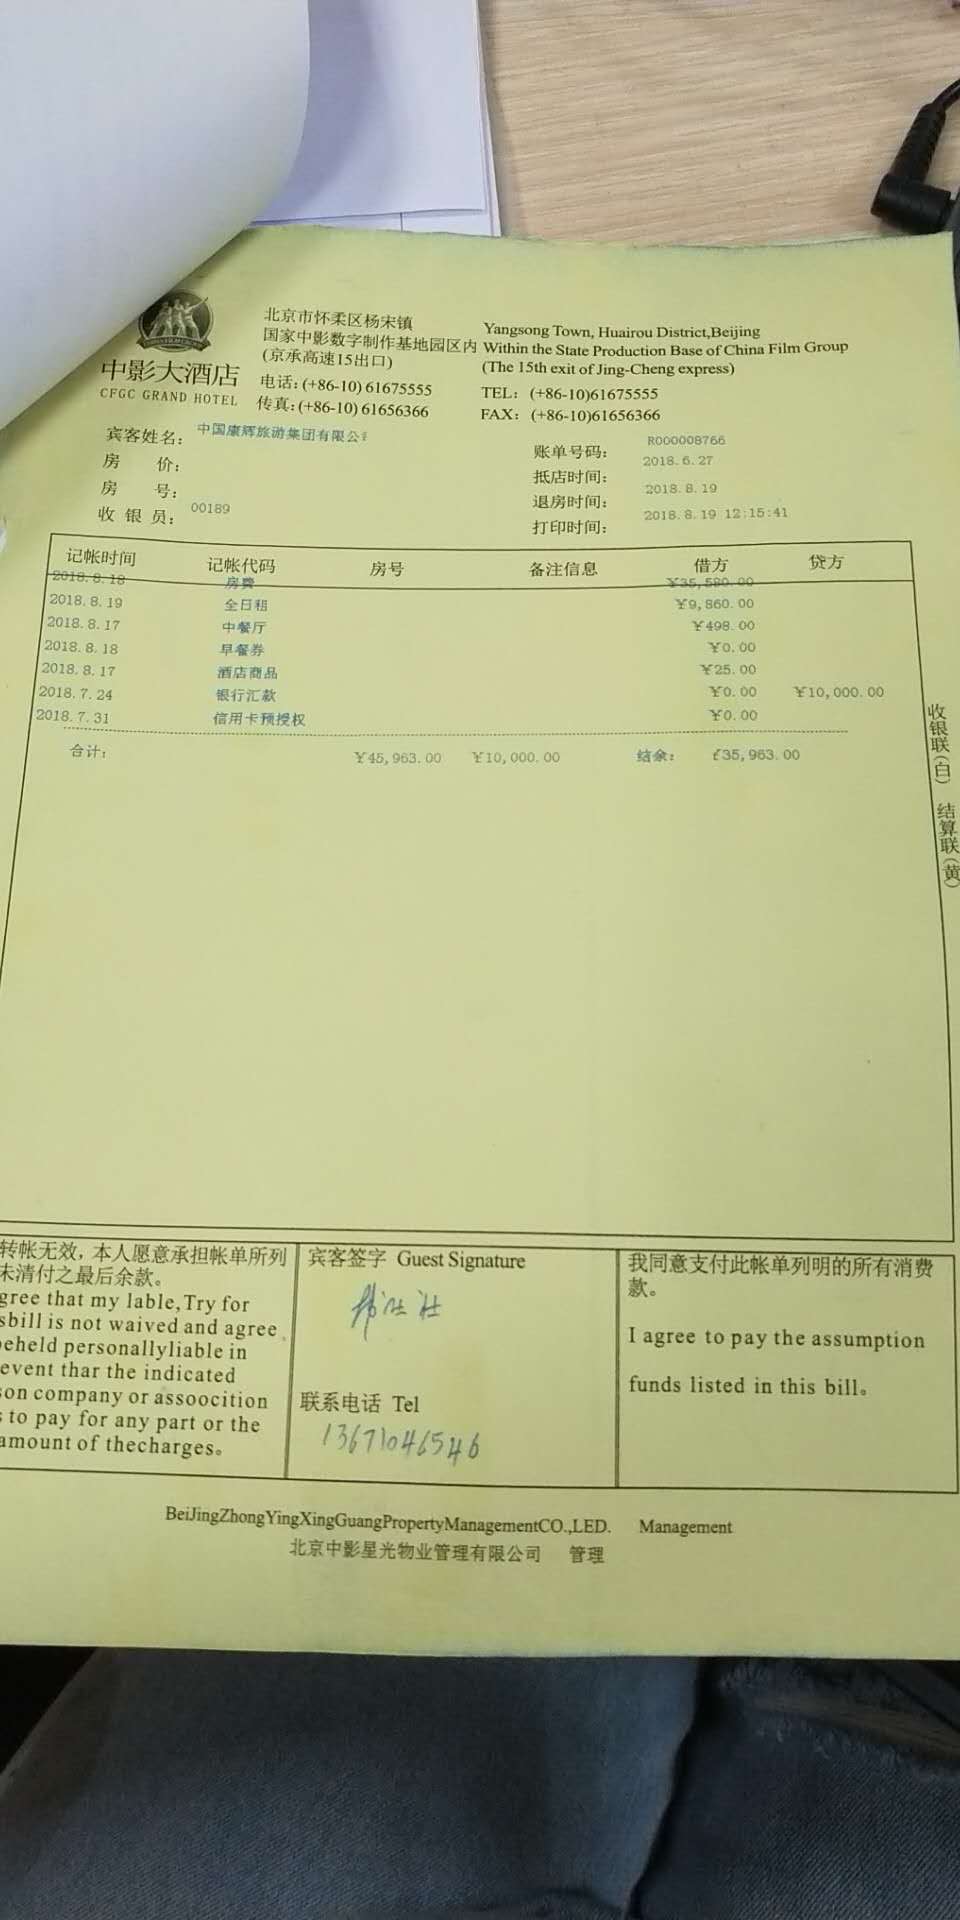 中影大酒店
CFGC GRAND HOTEL
北京市怀柔区杨宋镇
国家中影数字制作基地园区内
(京承高速15出口)
电话：(+86-10) 61675555
传真：(+86-10) 61656366
Yangsong Town, Huairou District,Beijing
Within the State Production Base of China Film Group
(The 15th exit of Jing-Cheng express)
TEL: (+86-10)61675555
FAX: (+86-10)61656366
宾客姓名： 中国康辉旅游集团有限公
房 价：
房 号：
收 银 员： 00189
账单号码： R000008766
抵店时间： 2018.6.27
退房时间： 2018.8.19
打印时间： 2018.8.19 12:15:41
记帐时间 记帐代码 房号 备注信息 借方 贷方
2018.8.18 房费 ¥35,580.00
2018.8.19 全日租 ¥9,860.00
2018.8.17 中餐厅 ¥498.00
2018.8.18 早餐券 ¥0.00
2018.8.17 酒店商品 ¥25.00
2018.7.24 银行汇款 ¥0.00 ¥10,000.00
2018.7.31 信用卡预授权 ¥0.00
合计： ¥45,963.00 ¥10,000.00 结余： ¥35,963.00
收银联(白) 结算联(黄)
转帐无效，本人愿意承担帐单所列
未清付之最后余款。
gree that my lable,Try for
sbill is not waived and agree
eheld personallyliable in
event thar the indicated
son company or assoocition
s to pay for any part or the
amount of thecharges。
宾客签字 Guest Signature
联系电话 Tel
13671046546
我同意支付此帐单列明的所有消费
款。
I agree to pay the assumption
funds listed in this bill。
BeiJingZhongYingXingGuangPropertyManagementCO.,LED. Management
北京中影星光物业管理有限公司 管理